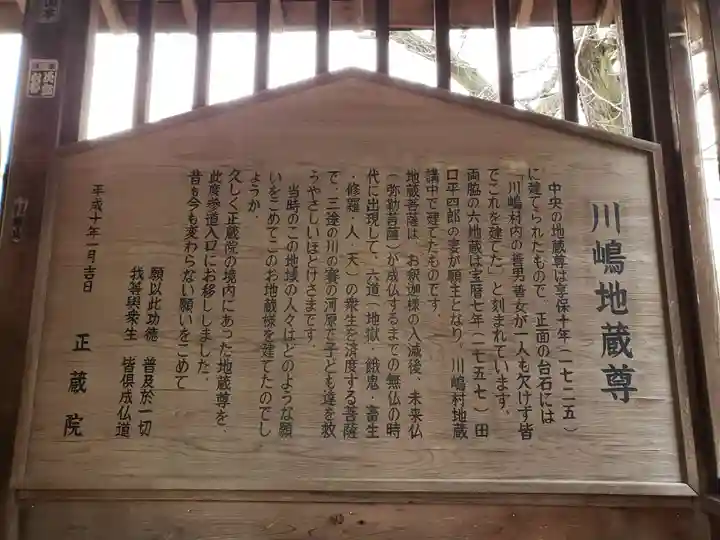 川嶋地蔵尊
中央の地蔵尊は享保十年(一七二五)
に建てられたもので、正面の台石には
「川嶋村内の善男善女が一人も欠けず皆
でこれを建てた」と刻まれています。
両脇の六地蔵は宝暦七年(一七五七)田
口平四郎の妻が願主となり、川嶋村地蔵
講中で建てたものです。
地蔵菩薩は、お釈迦様の入滅後、未来仏
(弥勒菩薩)が成仏するまでの無仏の時
代に出現して、六道(地獄・餓鬼・畜生
・修羅・人・天)の衆生を済度する菩薩
で、三途の川の賽の河原で子ども達を救
うやさしいほとけさまです。
当時のこの地域の人々はどのような願
いをこめてこのお地蔵様を建てたのでし
ょうか。
久しく正蔵院の境内にあった地蔵尊を、
此度参道入口にお移ししました。
昔も今も変わらない願いをこめて
願以此功徳 普及於一切
我等與衆生 皆倶成仏道
平成十年一月吉日
正蔵院